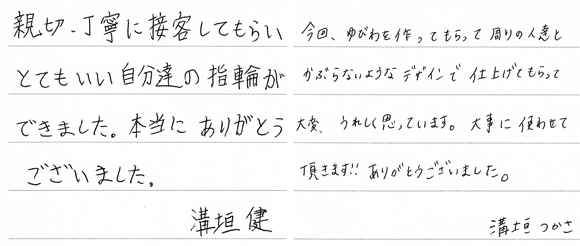 親切、丁寧に接客してもらい
とてもいい自分達の指輪が
できました。本当にありがとう
ございました。
溝垣 健
今回、ゆびわを作ってもらって周りの人達と
かぶらないようなデザインで仕上げてもらって
大変、うれしく思っています。大事に使わせて
頂きます!!ありがとうございました。
溝垣 つかさ